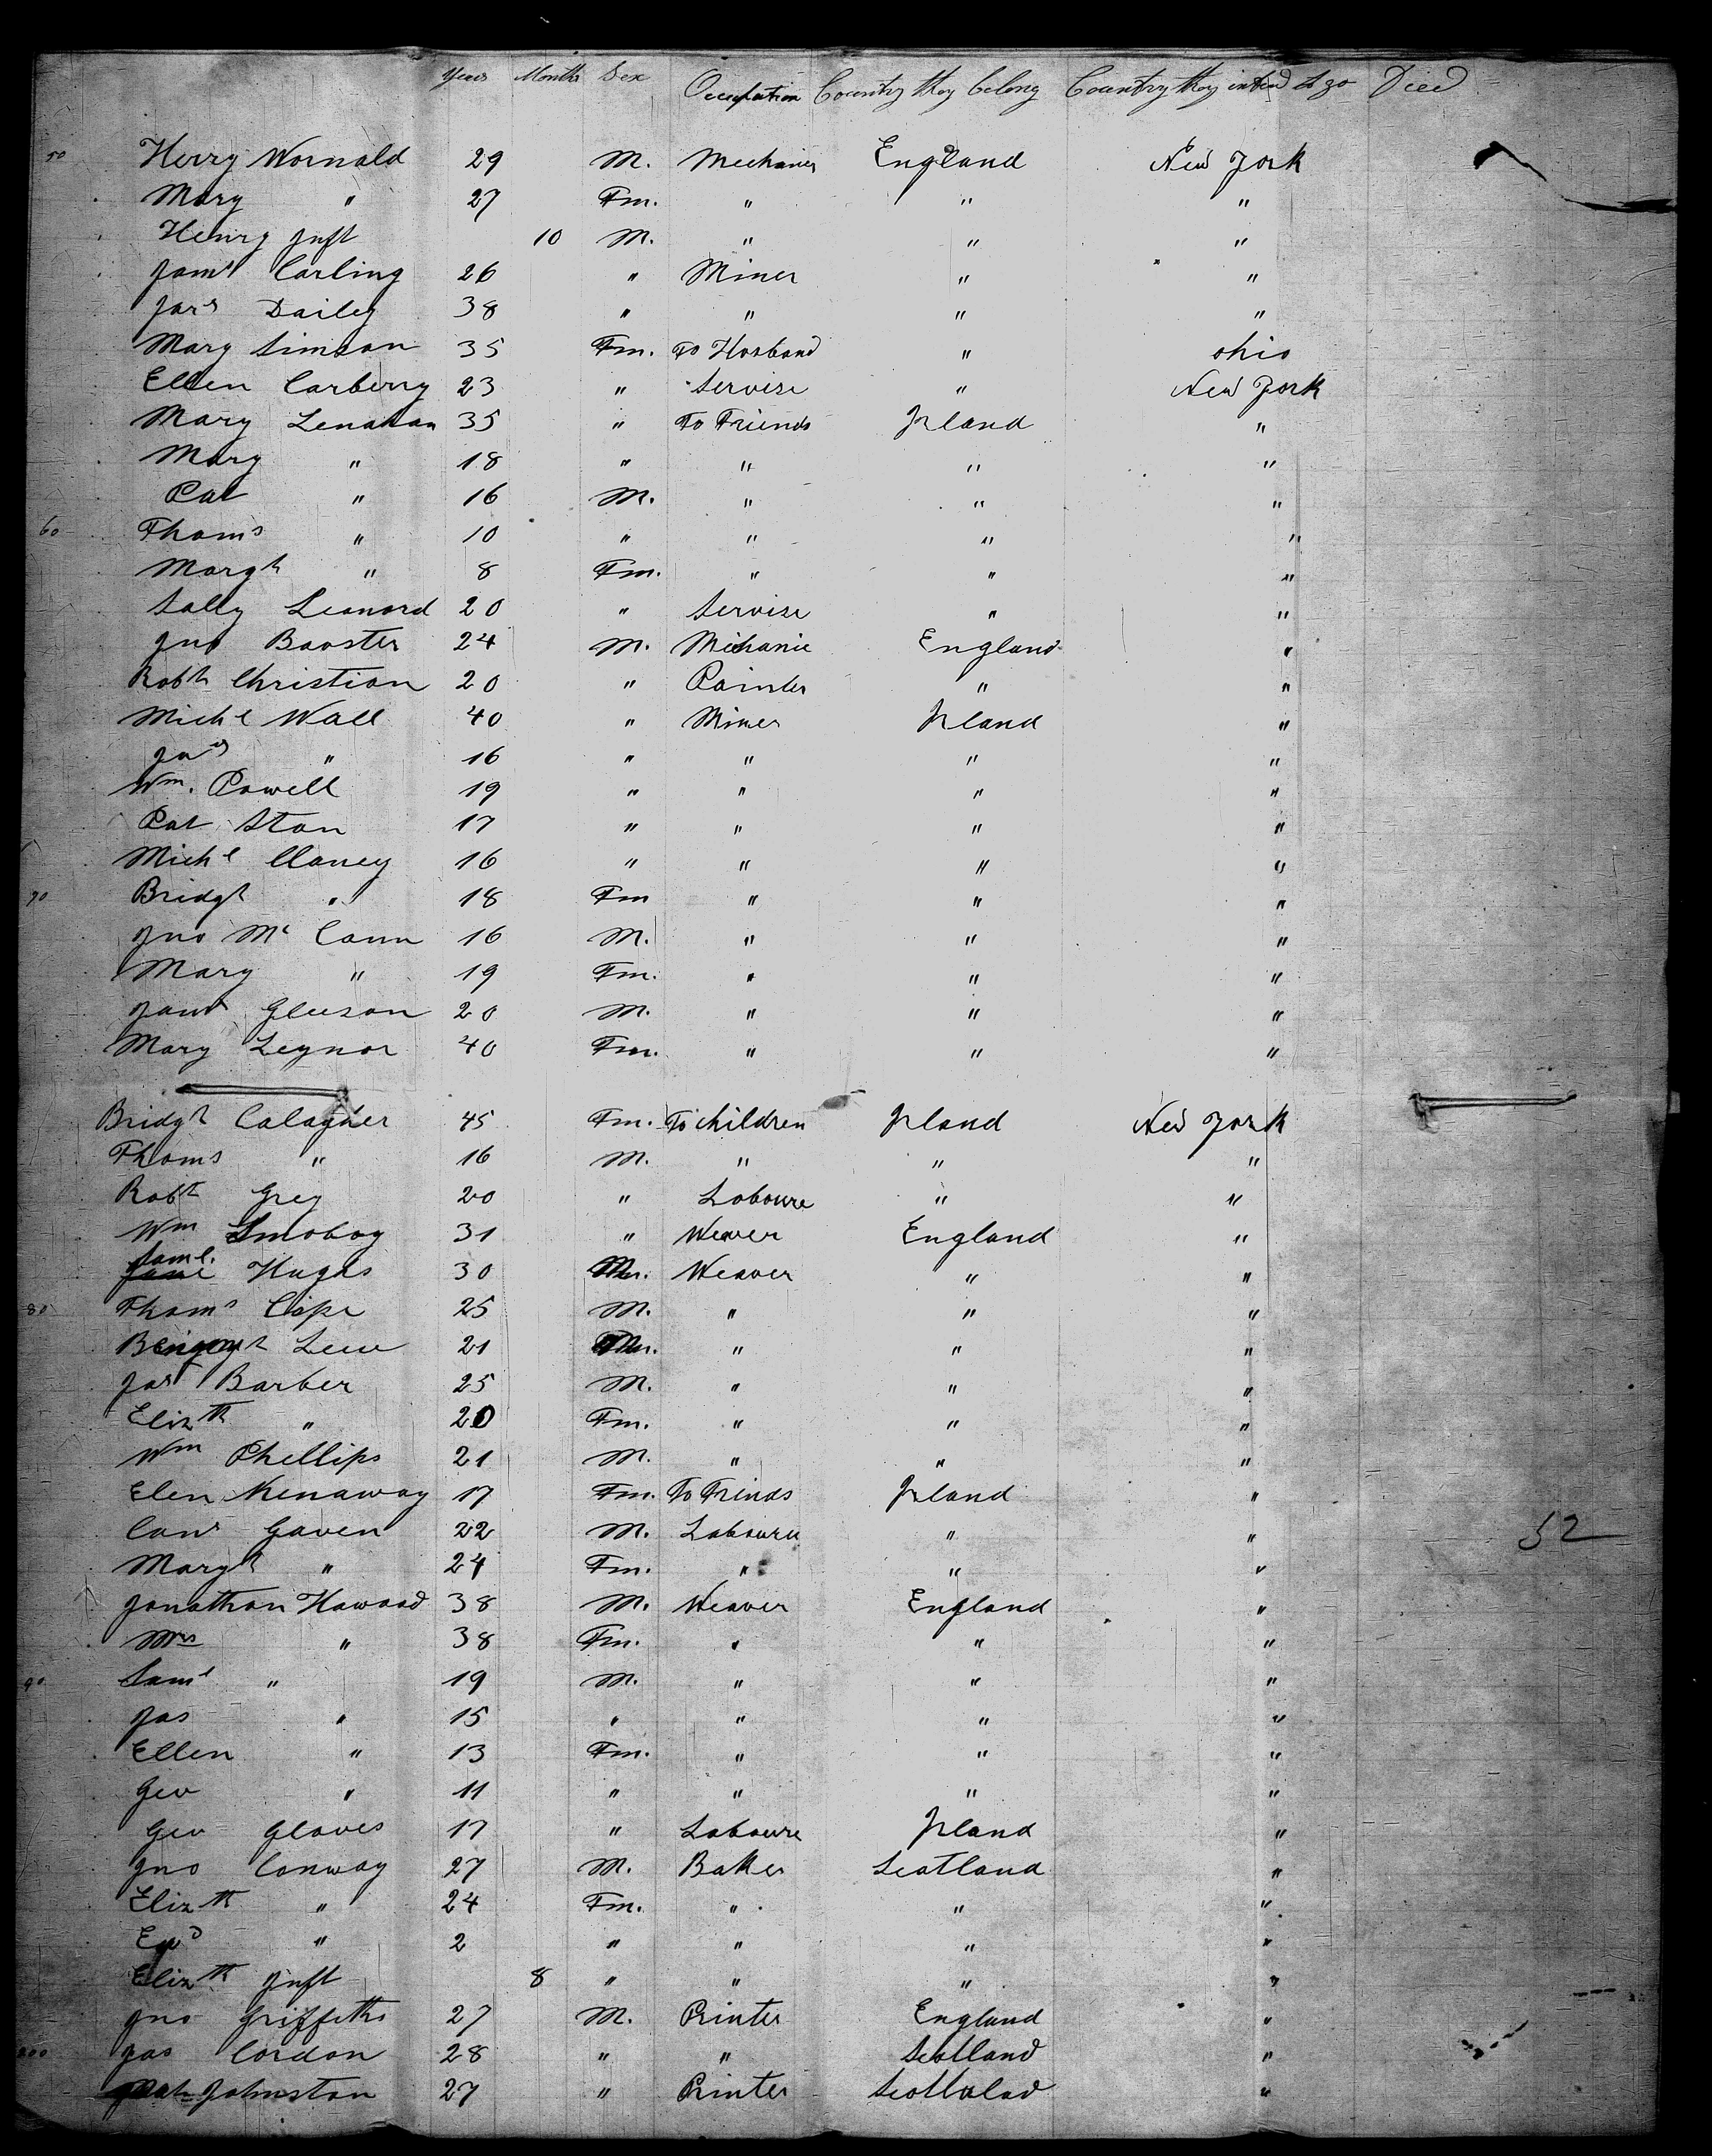 Years Months Sex Occupation Country they belong Country they intend to go Died
50 Henry Wornald 29 M. Mechanics England New York
Mary " 27 Fm. " " "
Henry Inft 10 M. " " "
Jams Carling 26 " Miner " "
Jas Dailey 38 " " " "
Mary Simson 35 Fm. To Hosband " ohio
Ellen Carberry 23 " Servise " New York
Mary Lenahan 35 " To Friends Irland "
Mary " 18 " " " "
Pat " 16 M. " " "
60 Thoms " 10 " " " "
Margt " 8 Fm. " " "
Sally Leonord 20 " Servise " "
Jno Baoster 24 M. Mechanic England "
Robt Christian 20 " Painter " "
Michl Wall 40 " Miner Irland "
Jas " 16 " " " "
Wm. Powell 19 " " " "
Pat Stan 17 " " " "
Michl Claney 16 " " " "
70 Bridgt " 18 Fm " " "
Jno Mc Cann 16 M. " " "
Mary " 19 Fm. " " "
Jams Gleeson 20 M. " " "
Mary Leynor 40 Fm. " " "
Bridgt Calagher 45 Fm. To children Irland New York
Thoms " 16 M. " " "
Robt Grey 20 " Laboure " "
Wm Smoboy 31 " Weaver England "
Saml. Hughs 30 M. Weaver " "
80 Thoms Cope 25 M. " " "
Lew 21 M. " " "
Jas Barber 25 M. " " "
Elizth " 20 Fm. " " "
Wm Phellips 21 M. " " "
Elen Kenaway 17 Fm. To Frinds Irland "
Gaven 22 M. Laboure " " 52
Margt " 24 Fm. " " "
Jonathan Hawood 38 M. Weaver England "
Mrs " 38 Fm. " " "
90 Saml " 19 M. " " "
Jas " 15 " " " "
Ellen " 13 Fm. " " "
Geo " 11 " " " "
Geo Gloves 17 " Laboure Irland "
Jno Conway 27 M. Baker Scotland "
Elizth " 24 Fm. " " "
" 2 " " " "
Elizth Inft 8 " " " "
Jno Griffeths 27 M. Printer England "
200 Jas Cordon 28 " " Scotland "
Johnston 27 " Printer Scotlalad "